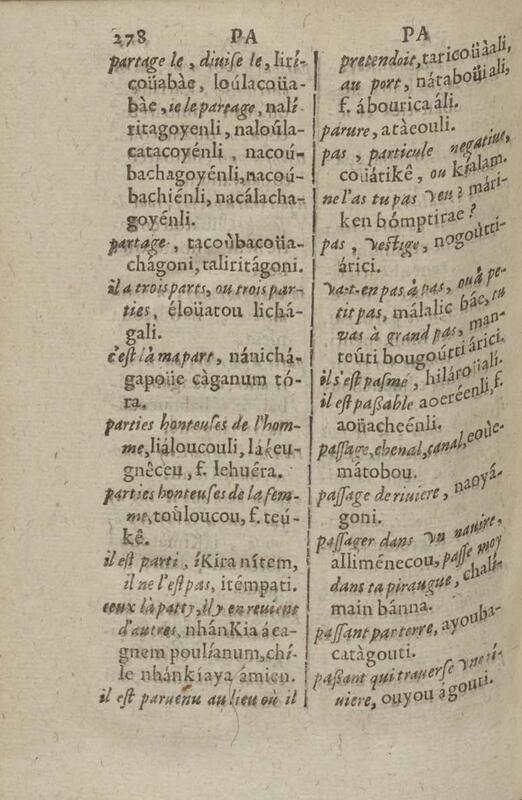 278 PA
partage le, diuise le, lirí-
coüabàe, loúlacoüa-
bàe, ie le partage, nalí
ritagoyenli, naloúla-
catacoyénli, nacoú-
bachagoyénli, nacoú-
bachiénli, nacálacha-
goyénli.
partage, tacoùbacoüa-
chágoni, taliritágoni.
il a trois parts, ou trois par-
ties, éloüatou lichá-
gali.
c'est là ma part, nánichá-
gapoüe càganum tó-
ra.
parties honteuses de l'hom-
me, liáloucouli, láκeu-
gnêceu, f. lehuéra.
parties honteuses de la fem-
me, toùloucou, f. teú-
kê.
il est parti, íKira nítem,
il ne l'est pas, itémpati.
ceux là party, il y en reuient
d'autres, nhánKia áca-
gnem poulíanum, chí-
le nhánkíaya ámien.
il est paruenu au lieu où il
PA
pretendoit, taricoüàali,
au port, nátaboüiali,
f. ábourica áli.
parure, atàcouli.
pas, particule negatiue,
coüátikê, ou kíalam.
ne l'as tu pas veu? mári-
ken bómptirae?
pas, vestige, nogoùtti-
árici.
va-t-en pas à pas, ou à pe-
tit pas, málalic bác, tu
vas à grand pas, man-
teúti bougoútti árici.
il s'est pasmé, hilároüali.
il est passable aoeréenli, f.
aoüacheénli.
passage, chenal, canal, eoùe-
mátobou.
passage de riuiere, naoyá-
goni.
passager dans vn nauire,
alliménecou, passe moy
dans ta piraugue, chalí-
main bánna.
passant par terre, ayouba-
catàgouti.
passant qui trauerse vne ri-
uiere, ouyou ágouti.